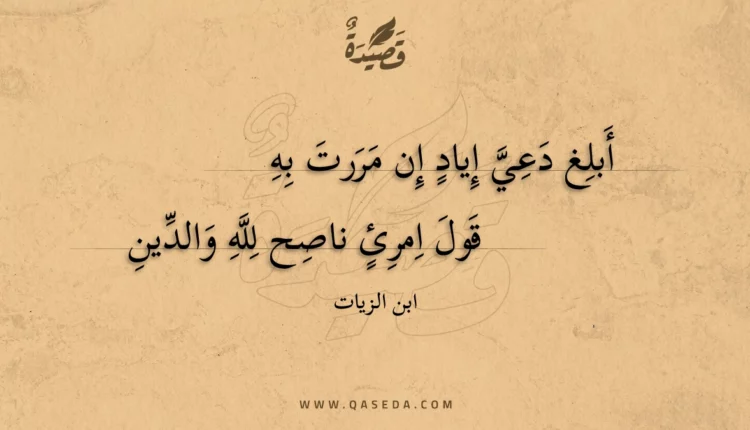 قَصِيدَةٌ
أَبلِغ دَعِيَّ إِيادٍ إِن مَرَرتَ بِهِ
قَولَ اِمرِئٍ ناصِحٍ لِلَّهِ وَالدِّينِ
ابن الزيات
WWW.QASEDA.COM